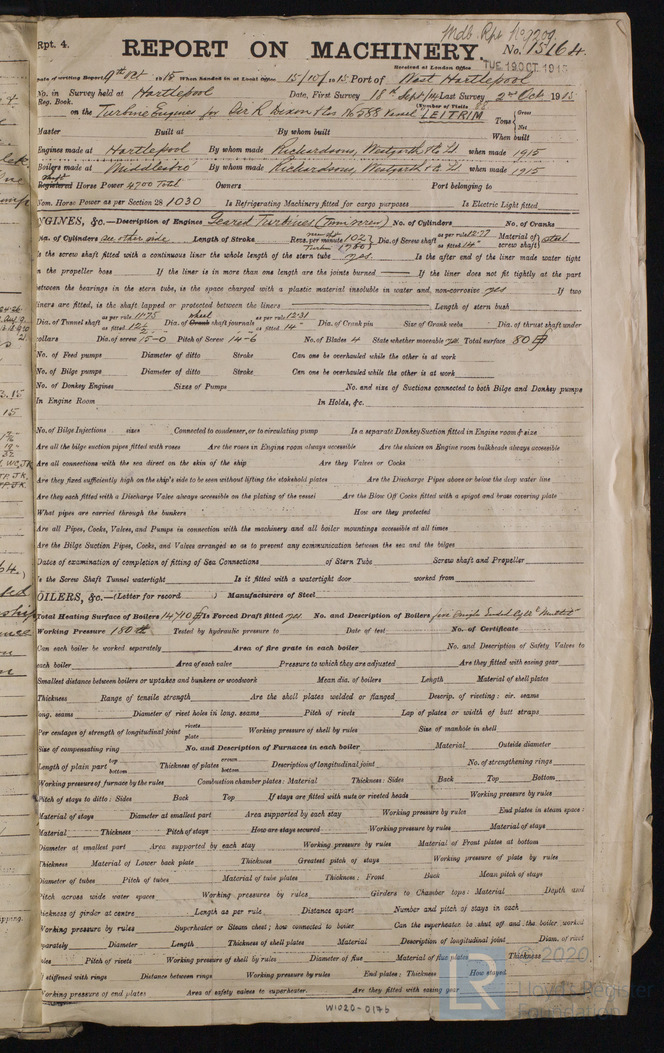 Mdb. Rpt No 9200.
Rpt. 4.
REPORT ON MACHINERY.
No. 15164.
Received at London Office TUE. 19 OCT. 1915
Date of writing Report 9th Oct 1915 When handed in at Local Office 15/10/1915 Port of West Hartlepool
No. in Survey held at Hartlepool Date, First Survey 18th Sept/14 Last Survey 2nd Oct 1915
Reg. Book. (Number of Visits 85
on the Turbine Engines for Sir R Dixon & Cos No 588 Vessel LEITRIM Tons { Gross Net
Master Built at By whom built When built
Engines made at Hartlepool By whom made Richardsons, Westgarth & Co Ld. when made 1915
Boilers made at Middlesbro By whom made Richardsons, Westgarth & Co. Ld. when made 1915
Registered Shaft Horse Power 4700 Total Owners Port belonging to
Nom. Horse Power as per Section 28 1030 Is Refrigerating Machinery fitted for cargo purposes Is Electric Light fitted
ENGINES, &c.—Description of Engines Geared Turbines (Twin screw) No. of Cylinders No. of Cranks
Dia. of Cylinders see other side Length of Stroke Revs. per minute Dia. of Screw shaft as per rule 12.77 as fitted 14" Material of screw shaft) steel
Is the screw shaft fitted with a continuous liner the whole length of the stern tube yes. Is the after end of the liner made water tight
in the propeller boss If the liner is in more than one length are the joints burned If the liner does not fit tightly at the part
between the bearings in the stern tube, is the space charged with a plastic material insoluble in water and non-corrosive yes If two
liners are fitted, is the shaft lapped or protected between the liners Length of stern bush
Dia. of Tunnel shaft as per rule 11.75 as fitted 12½ Dia. of Crank wheel shaft journals as per rule 12.31 as fitted 14" Dia. of Crank pin Size of Crank webs Dia. of thrust shaft under
collars Dia. of screw 15-0 Pitch of Screw 14-6 No. of Blades 4 State whether moveable yes Total surface 80
No. of Feed pumps Diameter of ditto Stroke Can one be overhauled while the other is at work
No. of Bilge pumps Diameter of ditto Stroke Can one be overhauled while the other is at work
No. of Donkey Engines Sizes of Pumps No. and size of Suctions connected to both Bilge and Donkey pumps
In Engine Room In Holds, &c.
No. of Bilge Injections sizes Connected to condenser, or to circulating pump Is a separate Donkey Suction fitted in Engine room & size
Are all the bilge suction pipes fitted with roses Are the roses in Engine room always accessible Are the sluices on Engine room bulkheads always accessible
Are all connections with the sea direct on the skin of the ship Are they Valves or Cocks
Are they fixed sufficiently high on the ship's side to be seen without lifting the stokehold plates Are the Discharge Pipes above or below the deep water line
Are they each fitted with a Discharge Valve always accessible on the plating of the vessel Are the Blow Off Cocks fitted with a spigot and brass covering plate
What pipes are carried through the bunkers How are they protected
Are all Pipes, Cocks, Valves, and Pumps in connection with the machinery and all boiler mountings accessible at all times
Are the Bilge Suction Pipes, Cocks, and Valves arranged so as to prevent any communication between the sea and the bilges
Dates of examination of completion of fitting of Sea Connections of Stern Tube Screw shaft and Propeller
Is the Screw Shaft Tunnel watertight Is it fitted with a watertight door worked from
BOILERS, &c.—(Letter for record ) Manufacturers of Steel
Total Heating Surface of Boilers 14740 Is Forced Draft fitted yes. No. and Description of Boilers five Single Ended Cylc Multitr
Working Pressure 180 lb Tested by hydraulic pressure to Date of test No. of Certificate
Can each boiler be worked separately Area of fire grate in each boiler No. and Description of Safety Valves to
each boiler Area of each valve Pressure to which they are adjusted Are they fitted with easing gear
Smallest distance between boilers or uptakes and bunkers or woodwork Mean dia. of boilers Length Material of shell plates
Thickness Range of tensile strength Are the shell plates welded or flanged Descrip. of riveting: cir. seams
long. seams Diameter of rivet holes in long. seams Pitch of rivets Lap of plates or width of butt straps
Per centages of strength of longitudinal joint rivets plate Working pressure of shell by rules Size of manhole in shell
Size of compensating ring No. and Description of Furnaces in each boiler Material Outside diameter
Length of plain part top bottom Thickness of plates crown bottom Description of longitudinal joint No. of strengthening rings
Working pressure of furnace by the rules Combustion chamber plates: Material Thickness: Sides Back Top Bottom
Pitch of stays to ditto: Sides Back Top If stays are fitted with nuts or riveted heads Working pressure by rules
Material of stays Diameter at smallest part Area supported by each stay Working pressure by rules End plates in steam space:
Material Thickness Pitch of stays How are stays secured Working pressure by rules Material of stays
Diameter at smallest part Area supported by each stay Working pressure by rules Material of Front plates at bottom
Thickness Material of Lower back plate Thickness Greatest pitch of stays Working pressure of plate by rules
Diameter of tubes Pitch of tubes Material of tube plates Thickness: Front Back Mean pitch of stays
Pitch across wide water spaces Working pressures by rules Girders to Chamber tops: Material Depth and
thickness of girder at centre Length as per rule Distance apart Number and pitch of stays in each
Working pressure by rules Superheater or Steam chest; how connected to boiler Can the superheater be shut off and the boiler worked
separately Diameter Length Thickness of shell plates Material Description of longitudinal joint Diam. of rivet
holes Pitch of rivets Working pressure of shell by rules Diameter of flue Material of flue plates Thickness
If stiffened with rings Distance between rings Working pressure by rules End plates: Thickness How stayed
Working pressure of end plates Area of safety valves to superheater Are they fitted with easing gear
© 2020
LR
Lloyd's Register
Foundation
W1020-0176